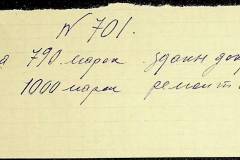 № 701.
а 790 марок здани
1000 марок ремонт